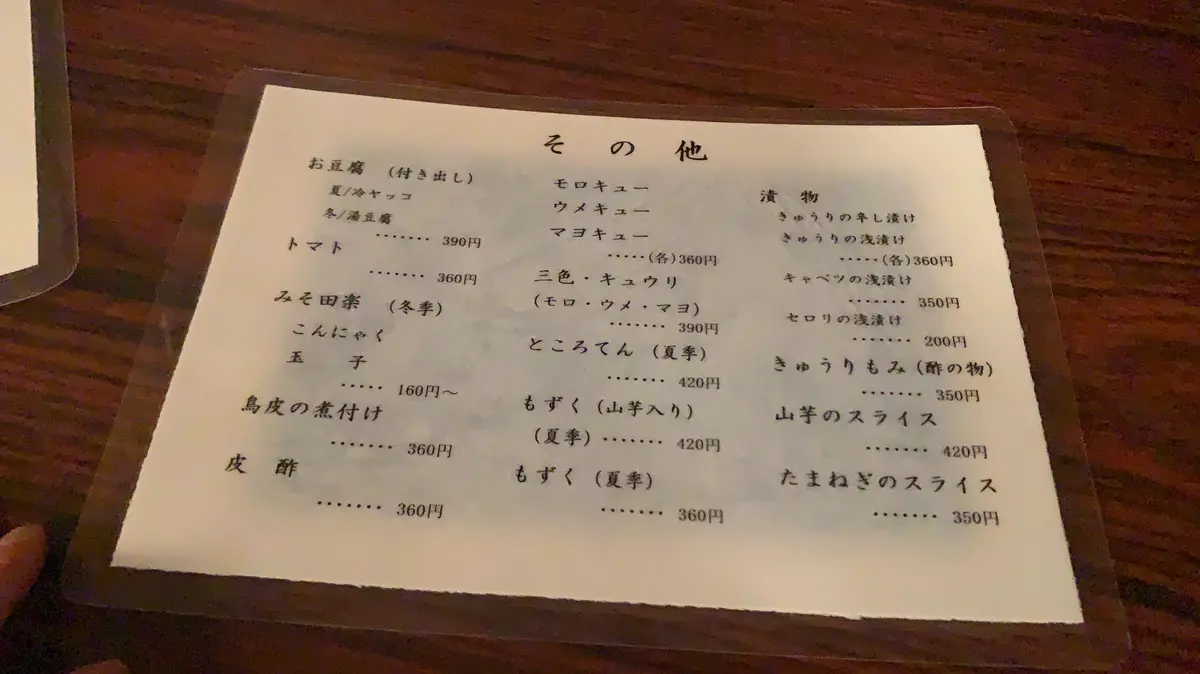 その他
お豆腐 (付き出し)
夏/冷ヤッコ
冬/湯豆腐
・・・・・・・ 390円
トマト
・・・・・・・ 360円
みそ田楽 (冬季)
こんにゃく
玉子
・・・・・ 160円～
鳥皮の煮付け
・・・・・・・ 360円
皮酢
・・・・・・・ 360円
モロキュー
ウメキュー
マヨキュー
・・・・・(各)360円
三色・キュウリ
(モロ・ウメ・マヨ)
・・・・・・・ 390円
ところてん (夏季)
・・・・・・・ 420円
もずく (山芋入り)
(夏季) ・・・・・・・ 420円
もずく (夏季)
・・・・・・・ 360円
漬物
きゅうりの辛し漬け
きゅうりの浅漬け
・・・・・(各)360円
キャベツの浅漬け
・・・・・・・ 350円
セロリの浅漬け
・・・・・・・ 200円
きゅうりもみ (酢の物)
・・・・・・・ 350円
山芋のスライス
・・・・・・・ 420円
たまねぎのスライス
・・・・・・・ 350円